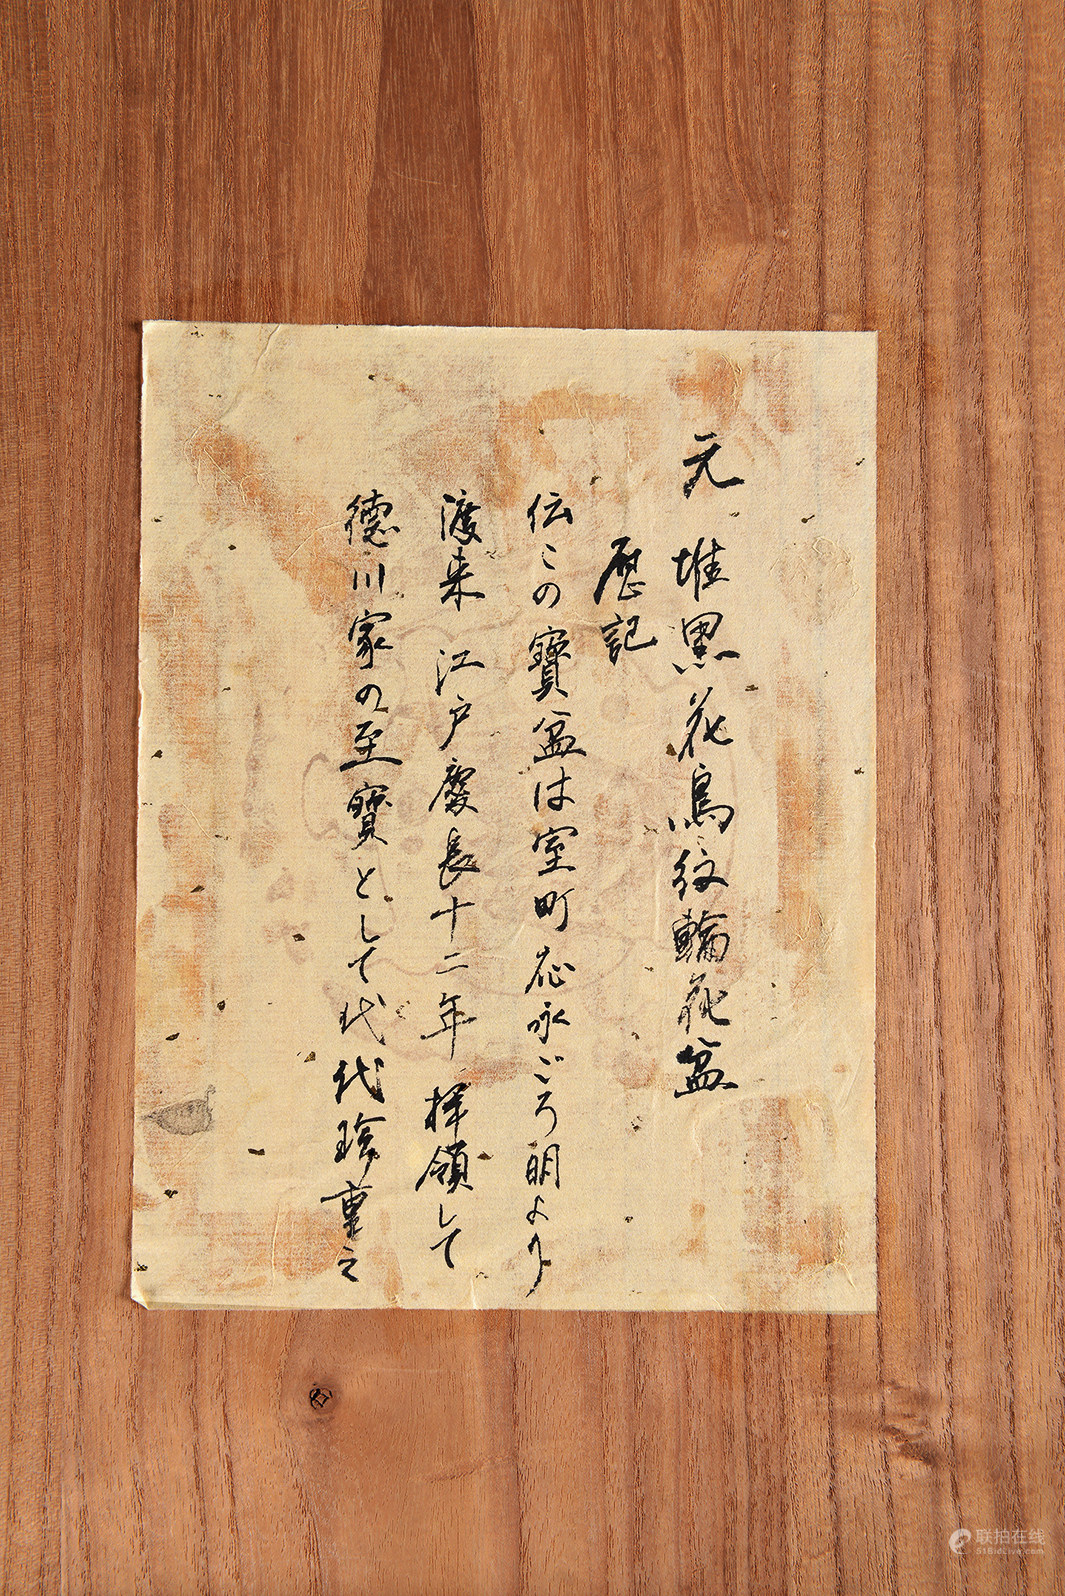 元 堆黒花鳥紋輪花盆
歴記
伝この寶盆は室町応永ごろ明より
渡来 江戸慶長十二年 拝領して
徳川家の至寶として代代珍重之
联拍在线
51BidLive.com